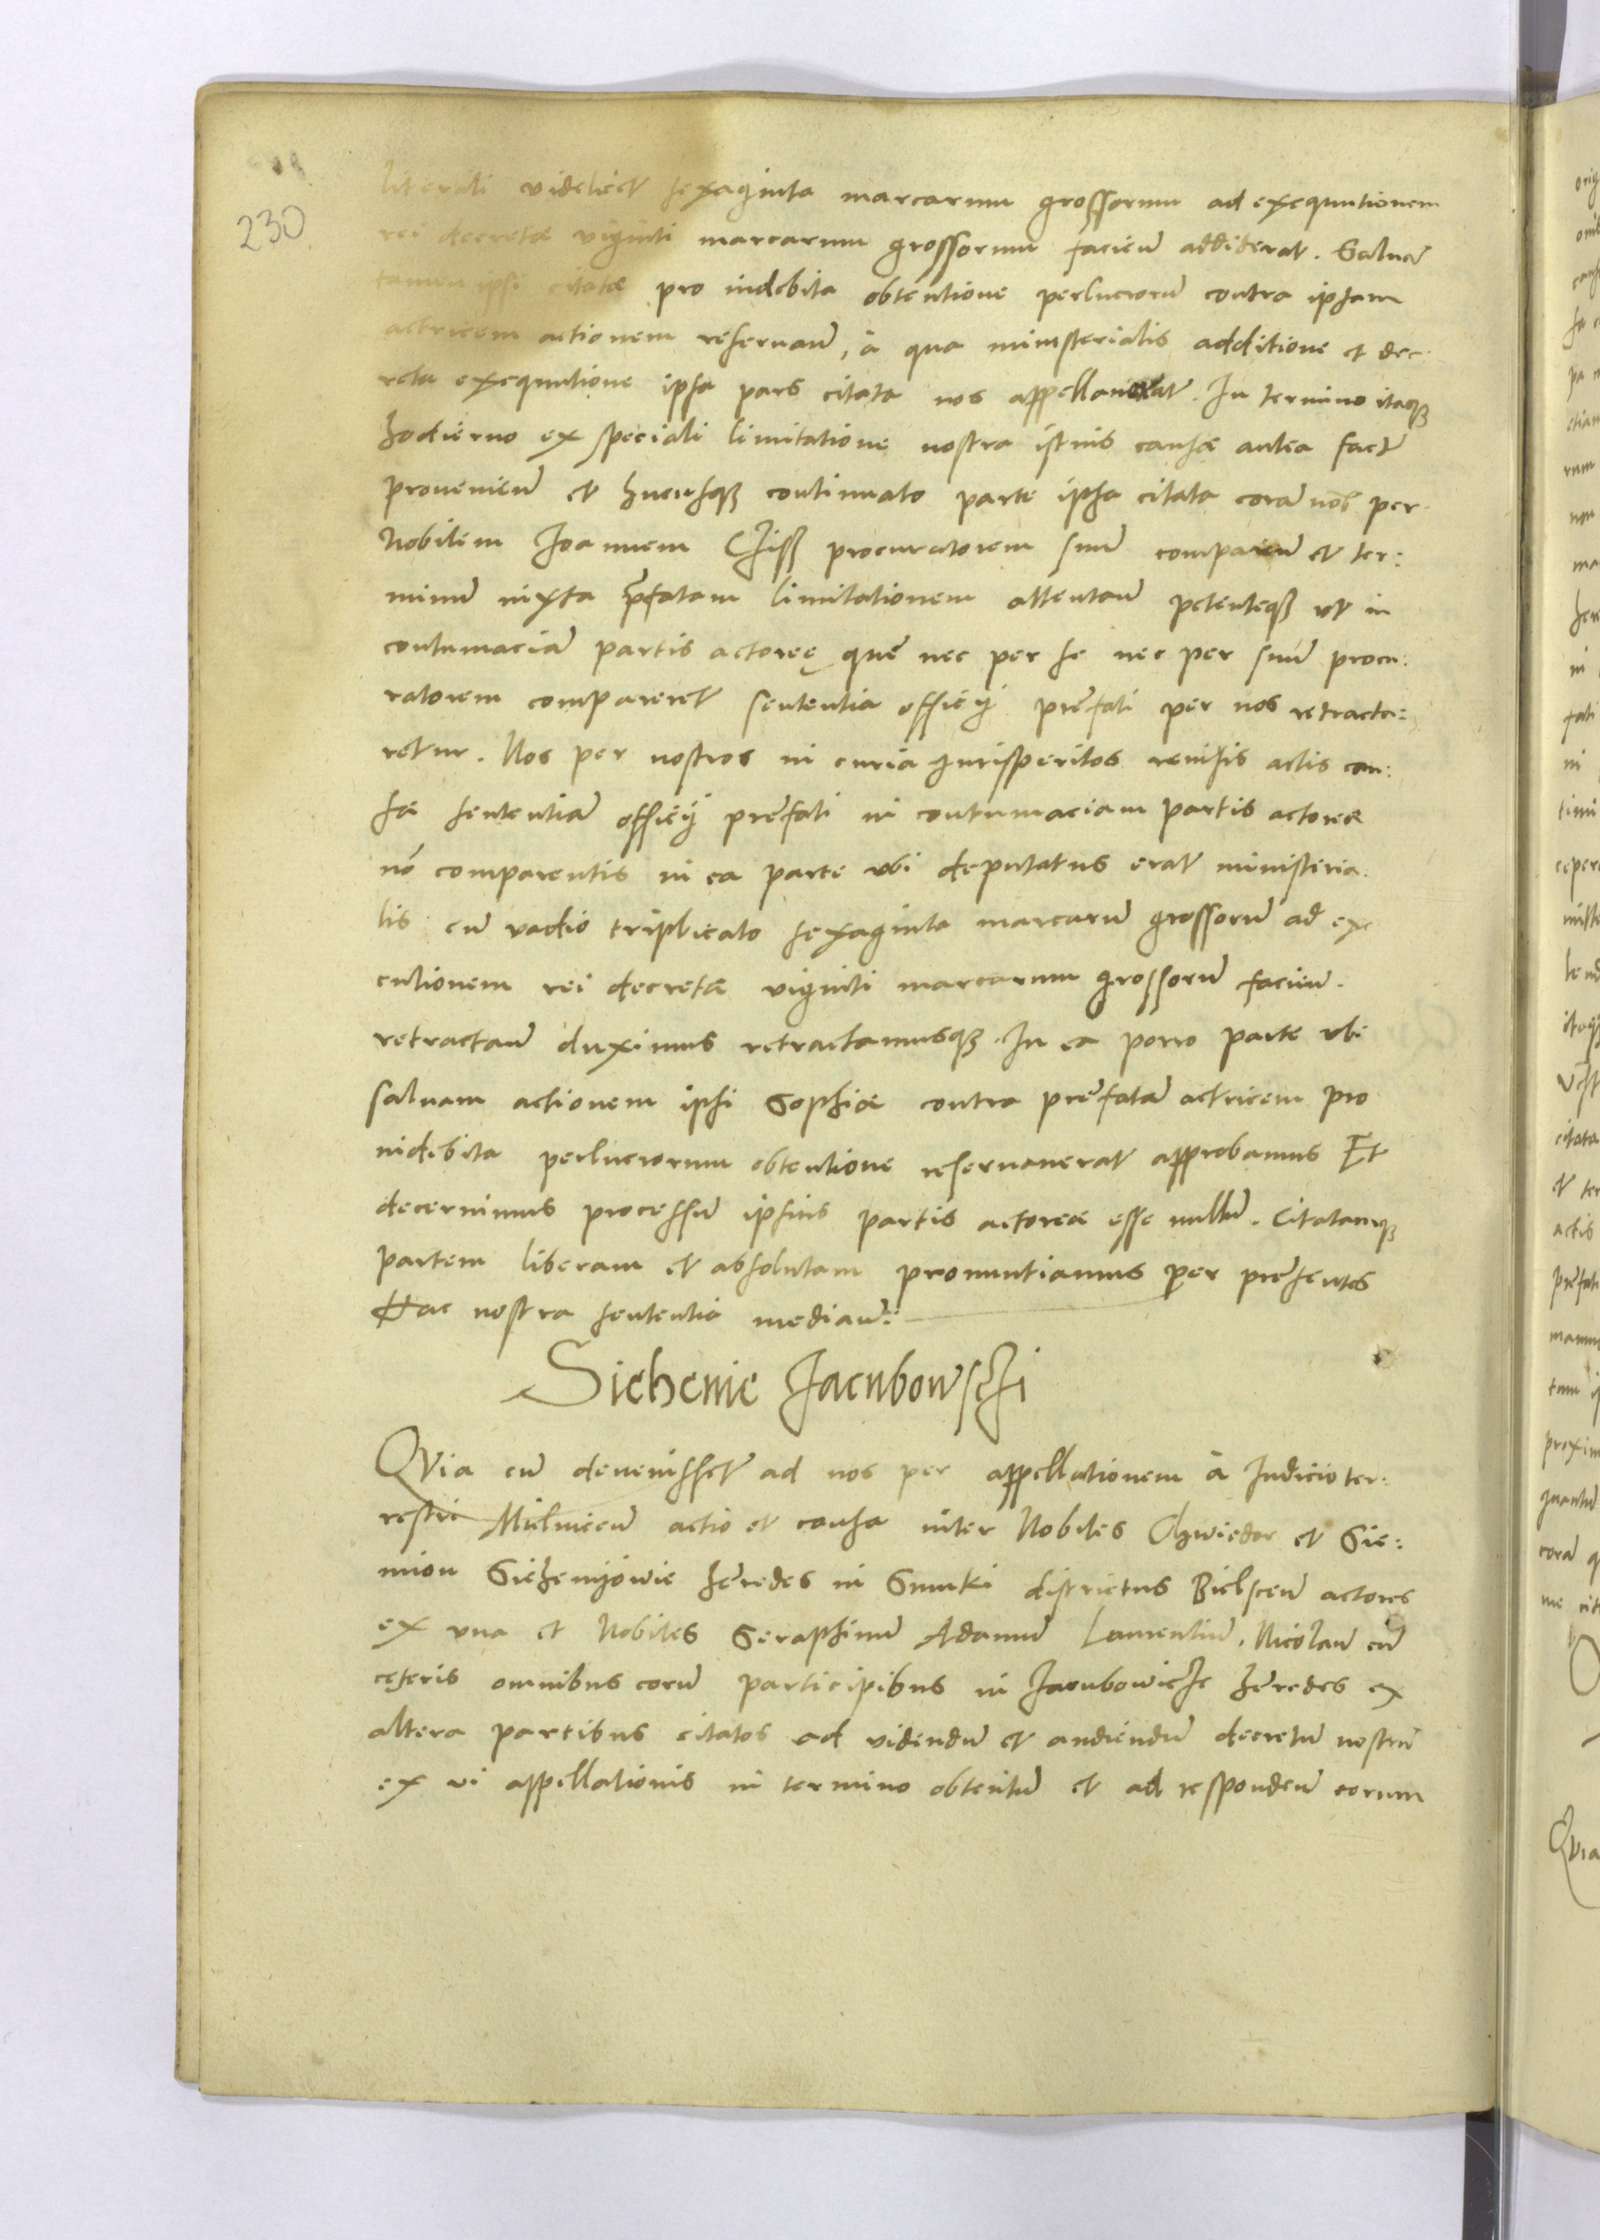 230
literali videlicet sexaginta marcarum grossorum ad exequutionem
rei decretae viginti marcarum grossorum faciem̄ addiderat. Saluā
tamen ipsi citatae pro indebita obtentione perlucrorū contra ipsam
actricem actionem reseruan̄, à qua ministerialis additione et dec:
reta exequutione ipsa pars citata nos appellauerat. In termino itaq3
hodierno ex speciali limitatione nostra istius causae antea fact̄
proueniem̄ et hucusq3 continuato parte ipsa citata corā nob̄ per
Nobilem Joannem procuratorem suū comparem̄ et ter:
minū iuxta p̄fatam limitationem attentan̄ petenteq3 vt in
contumaciā partis actoreę que nec per se nec per suū procu:
ratorem compareret sententia officij prefati per nos retracta:
retur. Nos per nostros in curia iurisperitos reuisis actis cau:
sae sententiā officij prefati in contumaciam partis actoreae
nō comparentis in ea parte vbi deputatus erat ministeria
lis cū vadio triplicato sexaginta marcarū grossorū ad exe
cutionem rei decretae viginti marcarum grossorū faciem̄.
retractan̄ duximus retractamusq3. In ea porro parte vbi
saluam actionem ipsi Sophiae contra prefatā actricem pro
indebita perlucrorum obtentione reseruauerat approbamus Et
decernimus processū ipsius partis actoreae esse nullū. Citatamq3
partem liberam et absolutam pronuntiamus per presentes
Hac nostra sententia median̄:
Siehenie Jacubowsczi
QVia cū deuenisset ad nos per appellationem à Iudicio ter:
restri Mielnicen̄ actio et causa inter Nobiles Chwiedor et Sie:
mion Siehenijowie heredes in Smuki districtus Bielscen̄ actores
ex vna et Nobiles Seraphinū Adamū Laurentiū, Nicolaū cū
ceteris omnibus eorū participibus in Jacubowicze heredes ex
altera partibus citatos ad videndū et audiendū decretū nostrū
ex vi appellationis in termino obtentū et ad respondem̄ eorum